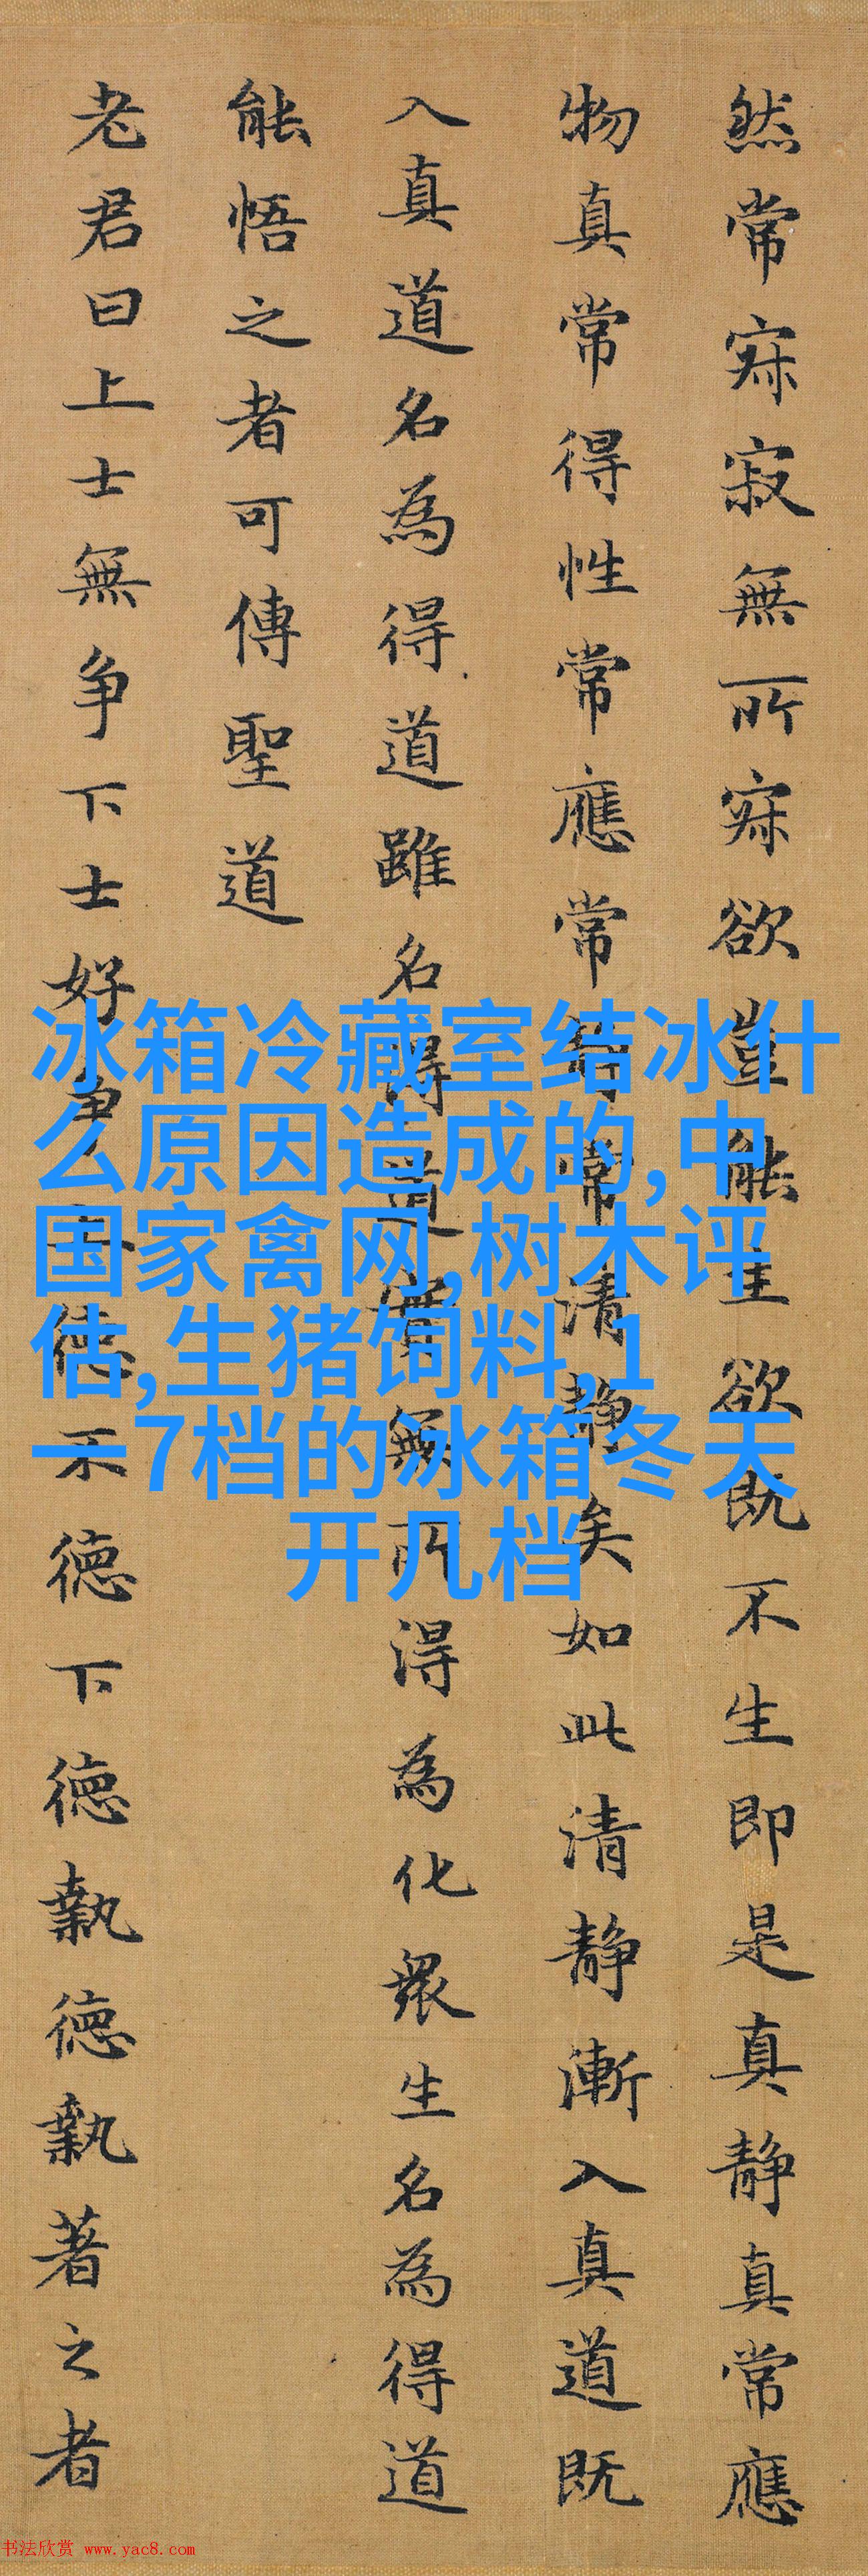 然常寂寂無所寂欲豈能生欲既不生即是真静真常應
物真常得性常應常静常清静矣如此清静漸入真道既
入真道名為得道雖名得道實無所得為化衆生名為得道
能悟之者可傳聖道
老君曰上士無争下士好争上德不德下德執德執著之者
冰箱冷藏室结冰什
么原因造成的,中
国家禽网,树木评
估,生猪饲料,1
一7档的冰箱冬天
开几档
书法欣赏 www.yac8.com